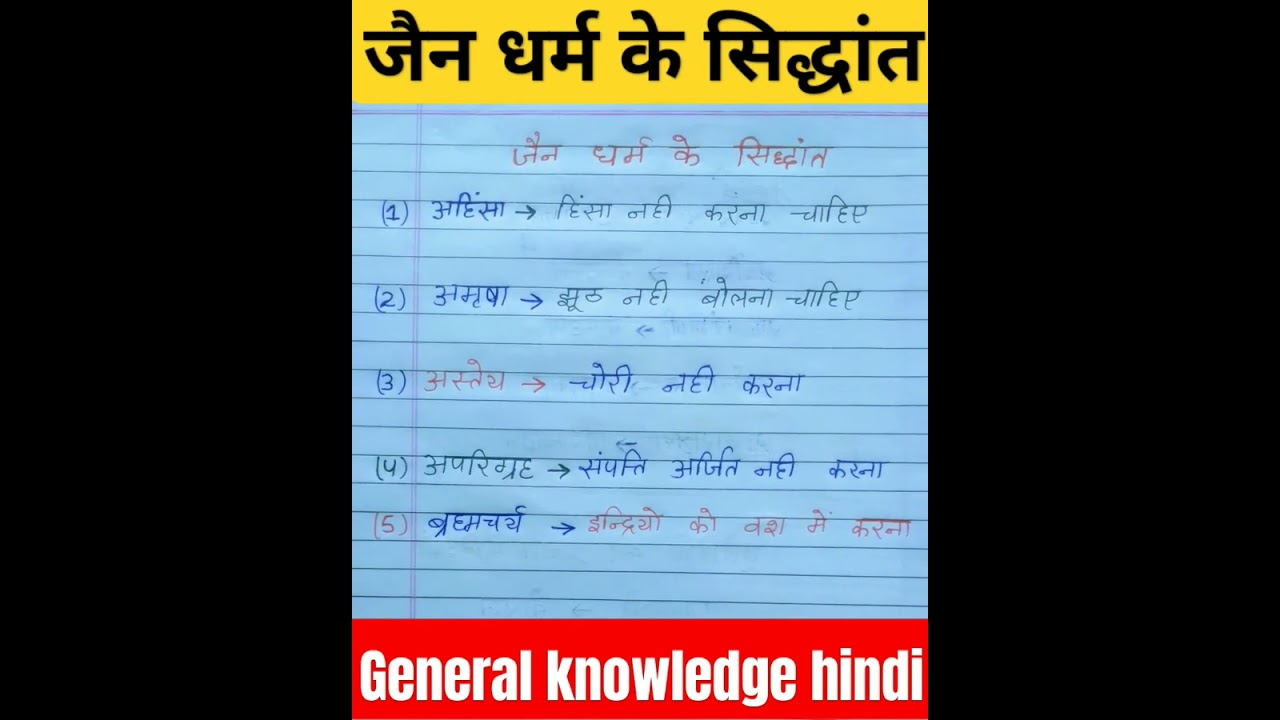 जैन धर्म के सिद्धांत
जैन धर्म के सिद्धांत
(1) अहिंसा → हिंसा नही करना चाहिए
(2) अमृषा → झूठ नही बोलना चाहिए
(3) अस्तेय → चोरी नही करना
(4) अपरिग्रह → संपत्ति अर्जित नही करना
(5) ब्रह्मचर्य → इन्द्रियो को वश में करना
General knowledge hindi